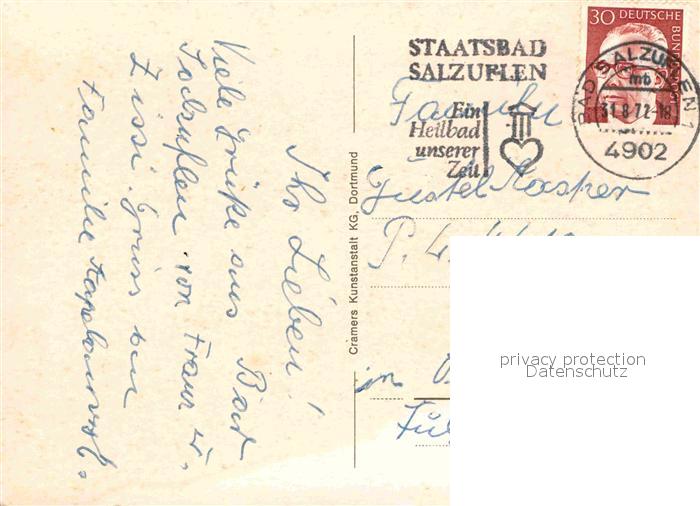 Ihr Lieben!
Viele Grüße aus Bad
Salzuflen von Franz u.
Zissi. Gruss an
Familie
STAATSBAD
SALZUFLEN
Ein
Heilbad
unserer
Zeit
30 DEUTSCHE BUNDESPOST
BAD SALZUFLEN 1
mb
31.8.72-18
4902
Familie
Gustel Kasper
in
Cramers Kunstanstalt KG, Dortmund
privacy protection
Datenschutz